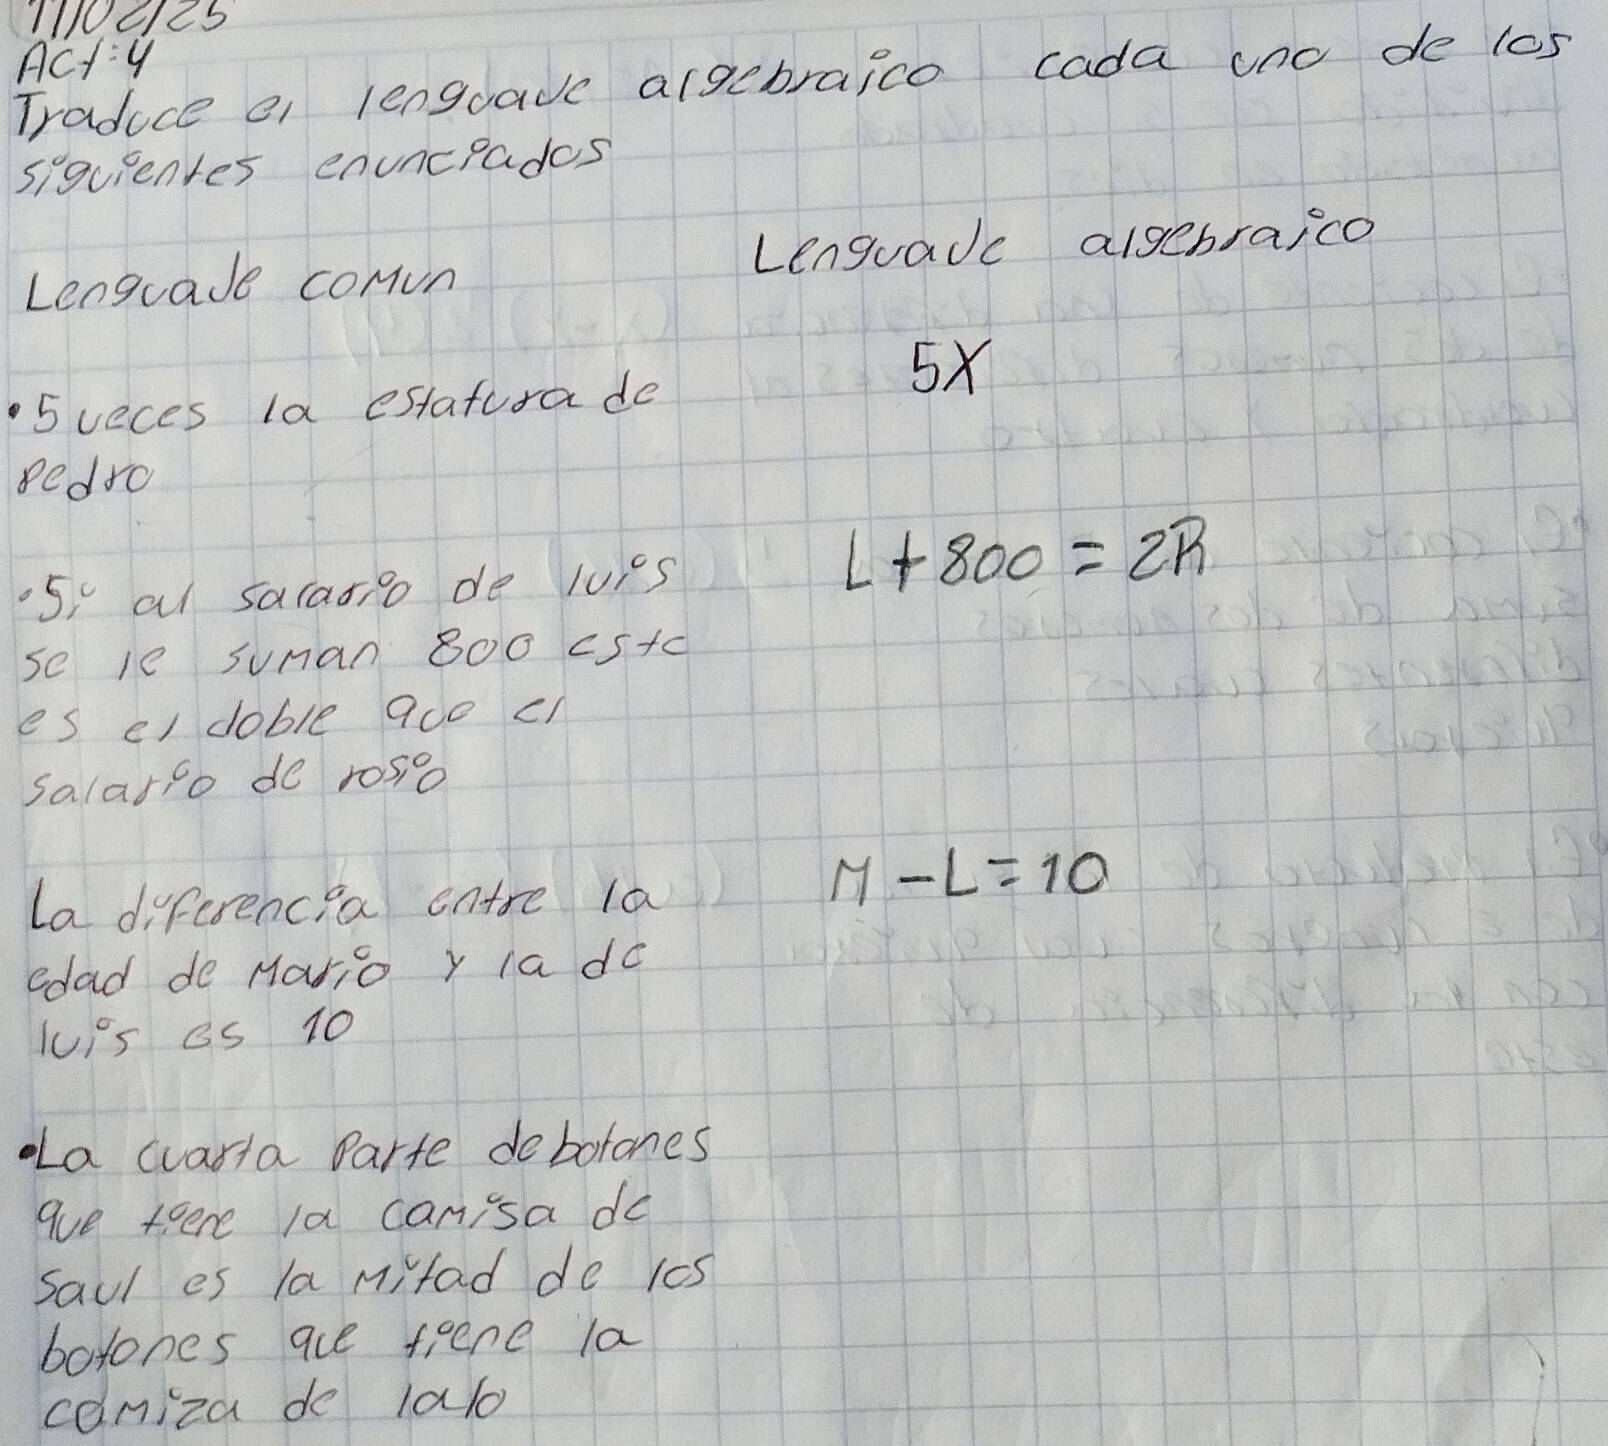 11/02/25
Act:4
Traduce el lenguaje algebraico cada uno de los
siguientes enunciados
Lenguaje comun
Lenguaje algebraico
•5 veces la estatura de
pedro
5X
•Si al salario de luis
se le suman 800 este
es el doble que el
salario de rosio
L+800=2R
La diferencia entre la
edad de Mario y la de
luis es 10
M-L=10
•La cuarta Parte de botones
que tiene la camisa de
saul es la mitad de los
botones que tiene la
camiza de lalo